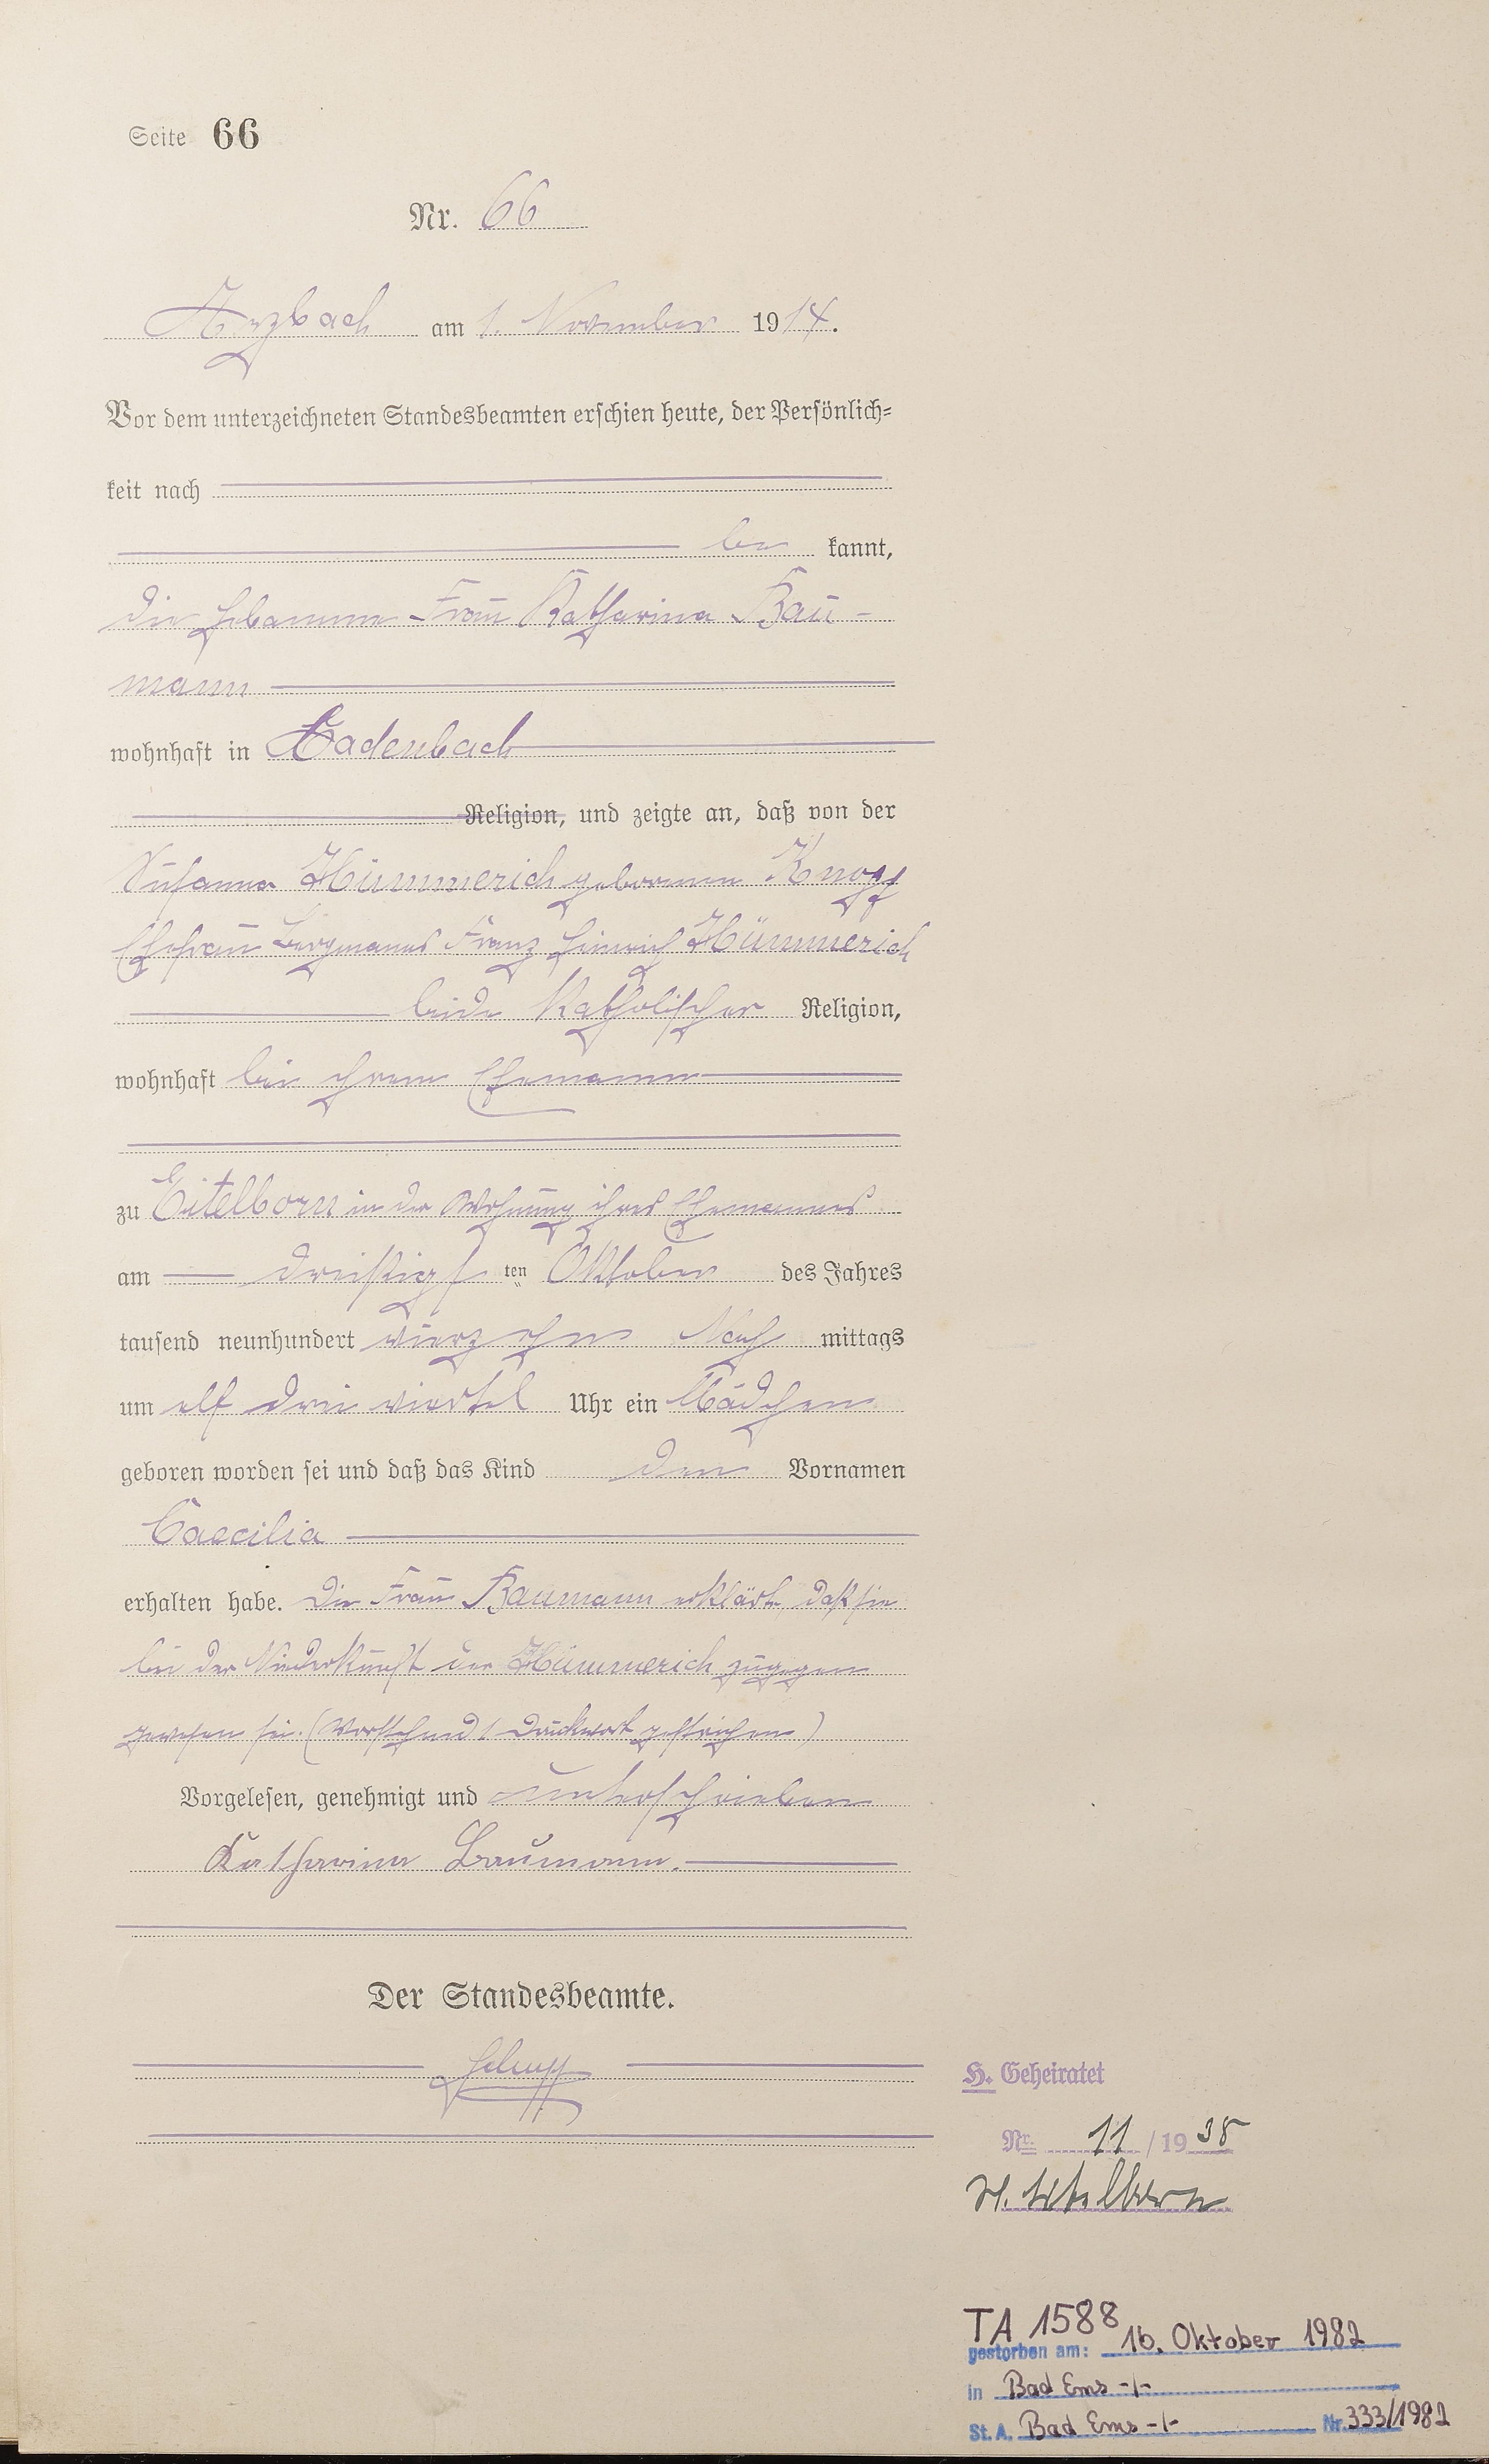 Seite 66
Nr. 66
Arzbach am 1. November 1914.
Vor dem unterzeichneten Standesbeamten erschien heute, der Persönlich=
keit nach
be kannt,
die Hebamme Frau Katharina Bau-
mann
wohnhaft in Cadenbach
Religion, und zeigte an, daß von der
Susanna Hümmerich geborenen Knopp
Ehefrau Bergmanns Franz Heinrich Hümmerich
beide Katholischer Religion,
wohnhaft bei ihrem Ehemanne
zu Eitelborn in der Wohnung ihres Ehemannes
am dreißigs ten Oktober des Jahres
tausend neunhundert vierzehn Nach mittags
um elf drei viertel Uhr ein Mädchen
geboren worden sei und daß das Kind den Vornamen
Caecilia
erhalten habe. Die Frau Baumann erklärte, daß sie
bei der Niederkunft der Hümmerich zugegen
gewesen sei. (Vorstehend 1 Druckwort gestrichen)
Vorgelesen, genehmigt und unterschrieben
Katharina Baumann.
Der Standesbeamte.
H. Geheiratet
Nr. 11 / 19 38
TA 1588
gestorben am: 16. Oktober 1982
in Bad Ems -/-
St. A. Bad Ems -/- Nr. 333/1982